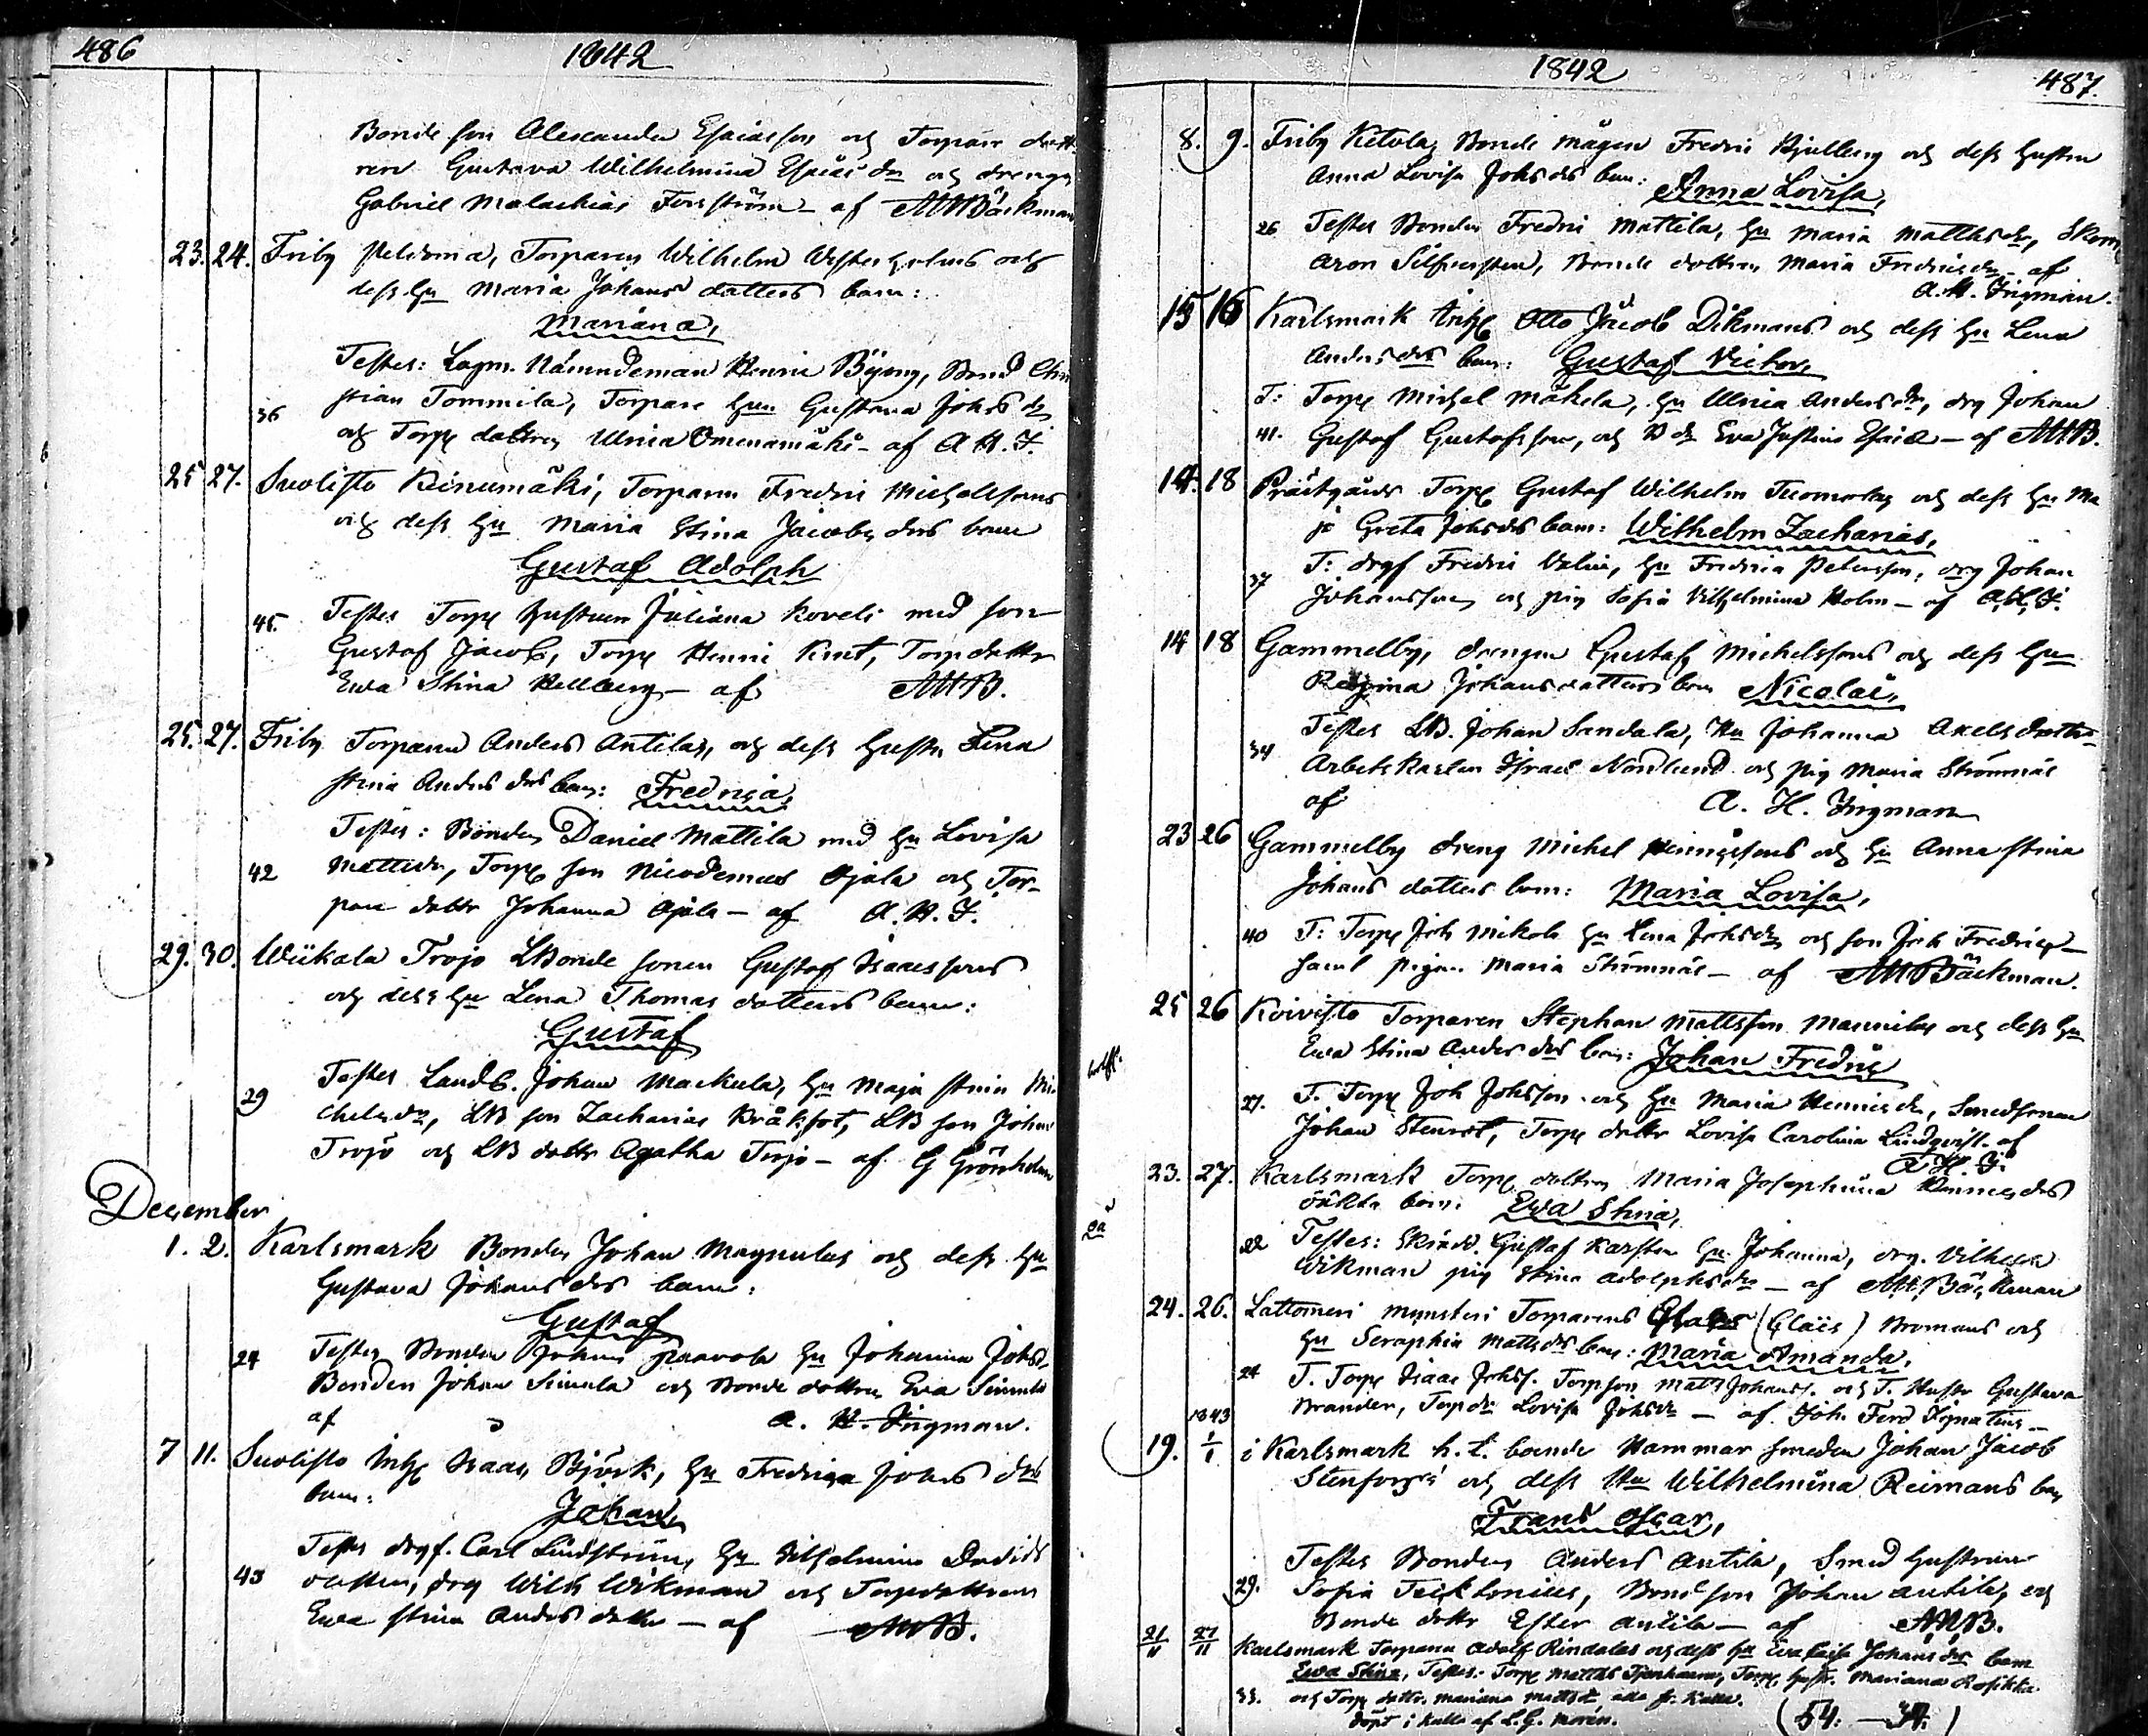 486
1842
Bonde son Alexander Esaiasson och Torpare dott
ren Gustava Wilhelmina Esaiasdr och drengn
Gabriel Malachias Forsström - af AHBäckman
23. 24. Friby Peldoma, Torparen Wilhelm Westerholms och
dess Hu Maria Johans dotters barn:
Mariana,
Testes: Lagm. Nämndeman Henric Böjong, Bond Chri
stian Tommila, Torpare Hun Gustava Johs dr
36 och Torp dottren Ulrica Omenamäki - af A H. I.
25 27. Suolisto Keinumäki, Torparen Fredric Michelssons
och dess Hu Maria Stina Jacobs drs barn
Gustaf Adolph
45. Testes Torp Hustrun Juliana Koveli med son
Gustaf Jacob, Torp Henric Knut, Torpdottr
Ewa Stina Kellberg - af AHB.
25. 27. Friby Torparen Anders Antilas, och dess Hustru Lena
Stina Anders drs barn: Fredrica,
Testes: Bonden Daniel Mattila med Hu Lovisa
42 Mattsdr, Torp son Nicodemus Ojala och Tor-
pare dottr Johanna Ojala - af A. H. I.
29. 30. Wiikala Trojo LBonde sonen Gustaf Isaacssons
och dess Hu Lena Thomas dotters barn:
Gustaf
29 Testes Landb. Johan Markula, Hu Maja Stina Mi
chelsdr, LB son Zacharias Kråkfot, LB son Johan
Trojo och LB dottr Agatha Trojo - af G Grönholm
December
1. 2. Karlsmark Bonden Johan Magnulas och dess Hu
Gustava Johans drs barn:
Gustaf
24 Testes Bonden Johan Paavola Hu Johanna Johsdr,
Bonden Johan Simula och Bonde dottren Eva Simula
af A. H. Ingman.
7 11. Suolisto Inh Isaac Björk, Hu Fredrica Johns dtrs
barn:
Johan,
Testes drgf. Carl Lindström, Hu Vilhelmina Davids
43 dotter, drg Wilh Wikman och Torpdottren
Ewa Stina Anders dotter - af AHB.
1842
487.
8. 9. Friby Ketola, Bonde mågen Fredric Kjellberg och dess Hustru
Anna Lovisa Johsdrs barn: Anna Lovisa,
26 Testes Bonden Fredric Mattila, Hu Maria Matthsdr, Skom
Aron Silfversten, Bonde dottren Maria Fredricsdr - af
A. H. Ingman.
15 16 Karlsmark Inh Otto Jacob Dikmans och dess Hu Lena
Anders drs barn: Gustaf Victor,
T: Torp Michel Mäkela, Hu Ulrica Andersdr, drg Johan
41. Gustaf Gustafsson, och B dr Eva Justina Esaiæ - af AHB.
14. 18 Prästgårds Torp Gustaf Wilhelm Tuomolas och dess Hu Ma
ja Greta Johsdrs barn: Wilhelm Zacharias,
37 T: drgf Fredric Valin, Hu Fredrica Petersson, drg Johan
Johansson och pig Sofia Vilhelmina Holm - af A. H. I.
14 18 Gammelby, drengen Gustaf Michelssons och dess Hu
Regina Johansdotters barn Nicolai,
34 Testes LB. Johan Sandala, Hu Johanna Axelsdotter
Arbetskarlen Israel Nordlund och pig Maria Strömnäs
af A. H. Ingman
23 26 Gammelby dreng Michel Henricssons och Hu Anna Stina
Johans dotters barn: Maria Lovisa,
40 T: Torp Joh Mikola Hu Lena Johsdr och son Joh Fredric
samt pigan Maria Strömnäs - af AHBäckman.
25 26 Koivisto Torparen Stephan Mattsson Mannilas och dess Hu
Ewa Stina Anders drs barn: Johan Fredric
27. T. Torp Joh Johsson och Hu Maria Henricsdr, Smedsonen
Johan Stenrot, Torp dottr Lovisa Carolina Lindqvist. af
A. H. I.
23. 27. Karlsmark Torp dottren Maria Josephina Henricsdrs
oäkta barn. Ewa Stina,
22 Testes: Skrädd. Gustaf Karsten Hu Johanna, drg. Vilhelm
Wikman pig Stina Adolphsdr - af AHBäckman
24. 26. Lattomeri Mynsteri Torparens (Glaës) Bromans och
Hu Seraphia Mattsdrs barn: Maria Amanda,
24 T. Torp Isaac Johss. Torpson Matts Johanss. och T. Hustr Gustava
Brander, Torpdr Lovisa Johsdr - af. Joh. Ferd Ignatius -
1843
19. 1/1 i Karlsmark h. t. boende Hammar smeden Johan Jacob
Stenfors och dess Hu Wilhelmina Reimans barn
Frans Oscar,
Testes Bonden Anders Antila, Smed Hustrun
29. Sofia Tecktonius, Bond son Johan Antila, och
Bonde dottr Ester Antila - af AHB.
21/11 27/11 Karlsmark Torparen Adolf Rindalas och dess Hu Eva Caisa Johans drs barn
Ewa Stina, Testes: Torp Matths Tjenhaara, Torp Hustr. Mariana Rosikka
33. och Torp dottr. Mariana Mattsdr alla fr. Kulla.
döpt i Kulla af L. G. Morén.
(54. - 34.)